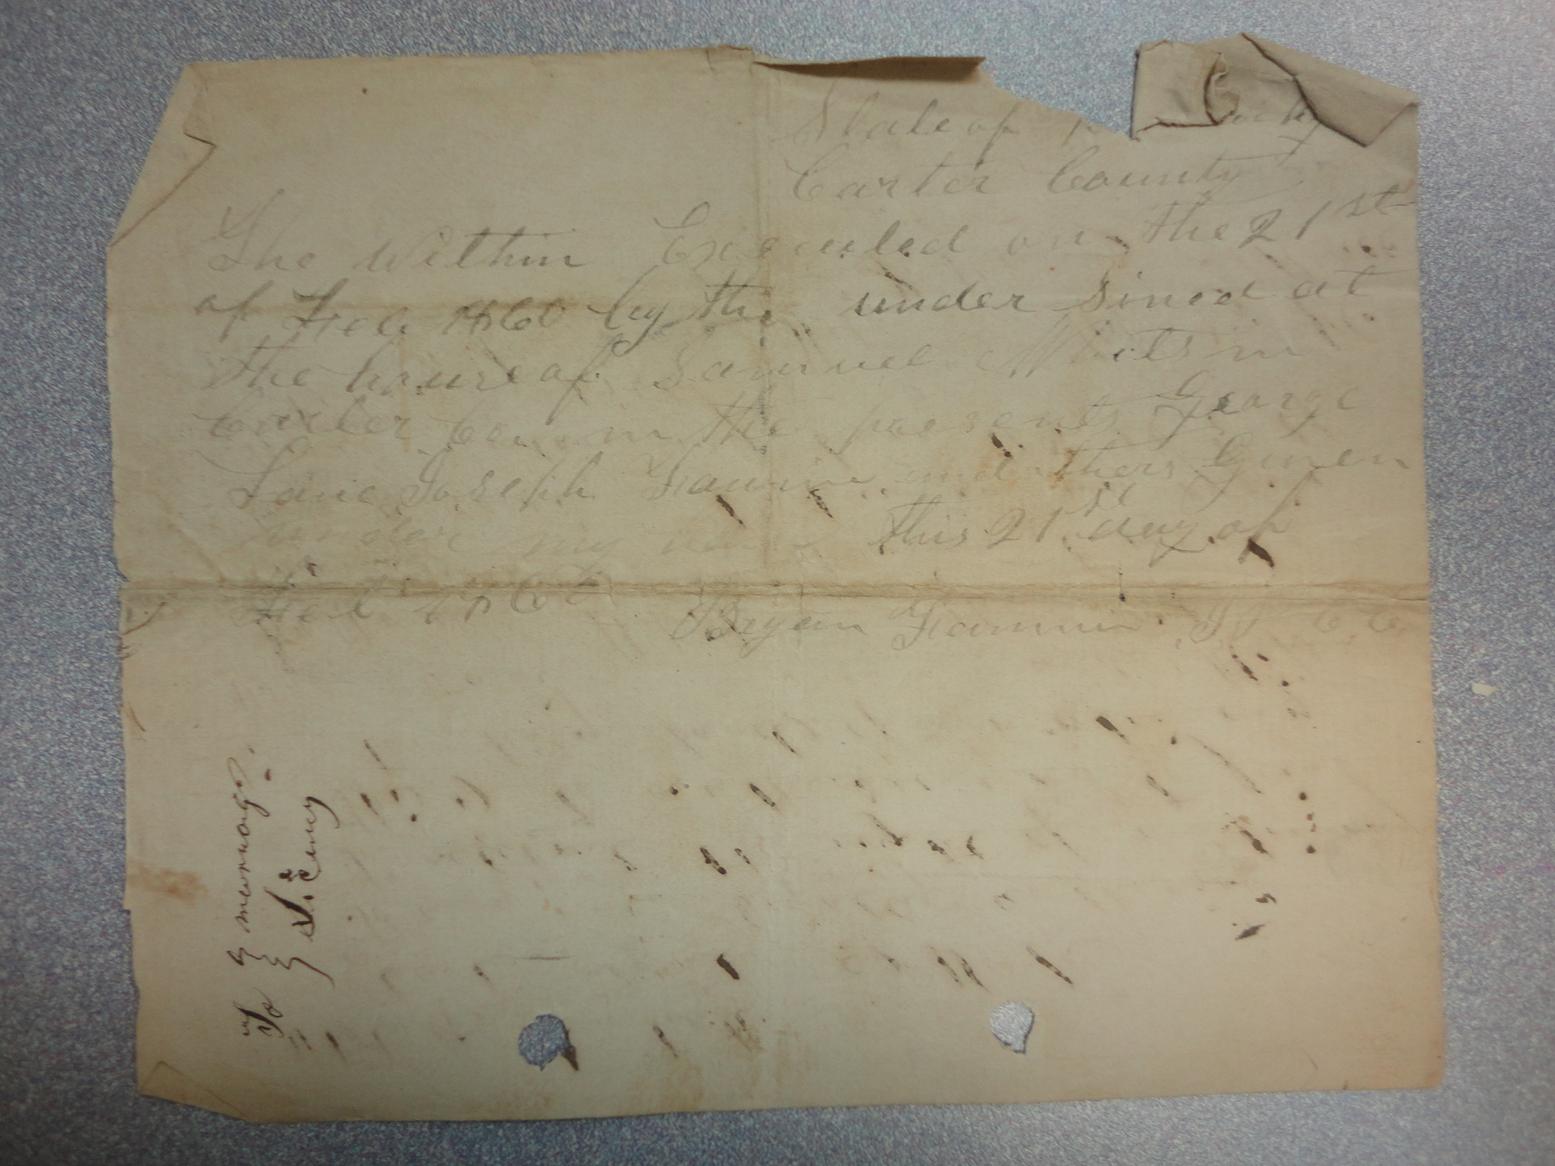 State of
Carter County
The Within Executed on the 21st
of Feb 1866 by the under sined at
the house of Samuel in
Carter Co in the presents George
Joseph Fannin and thers Given
under my this 21st day of
Feb 1866 Bryan Fannin
To marriage
Licens